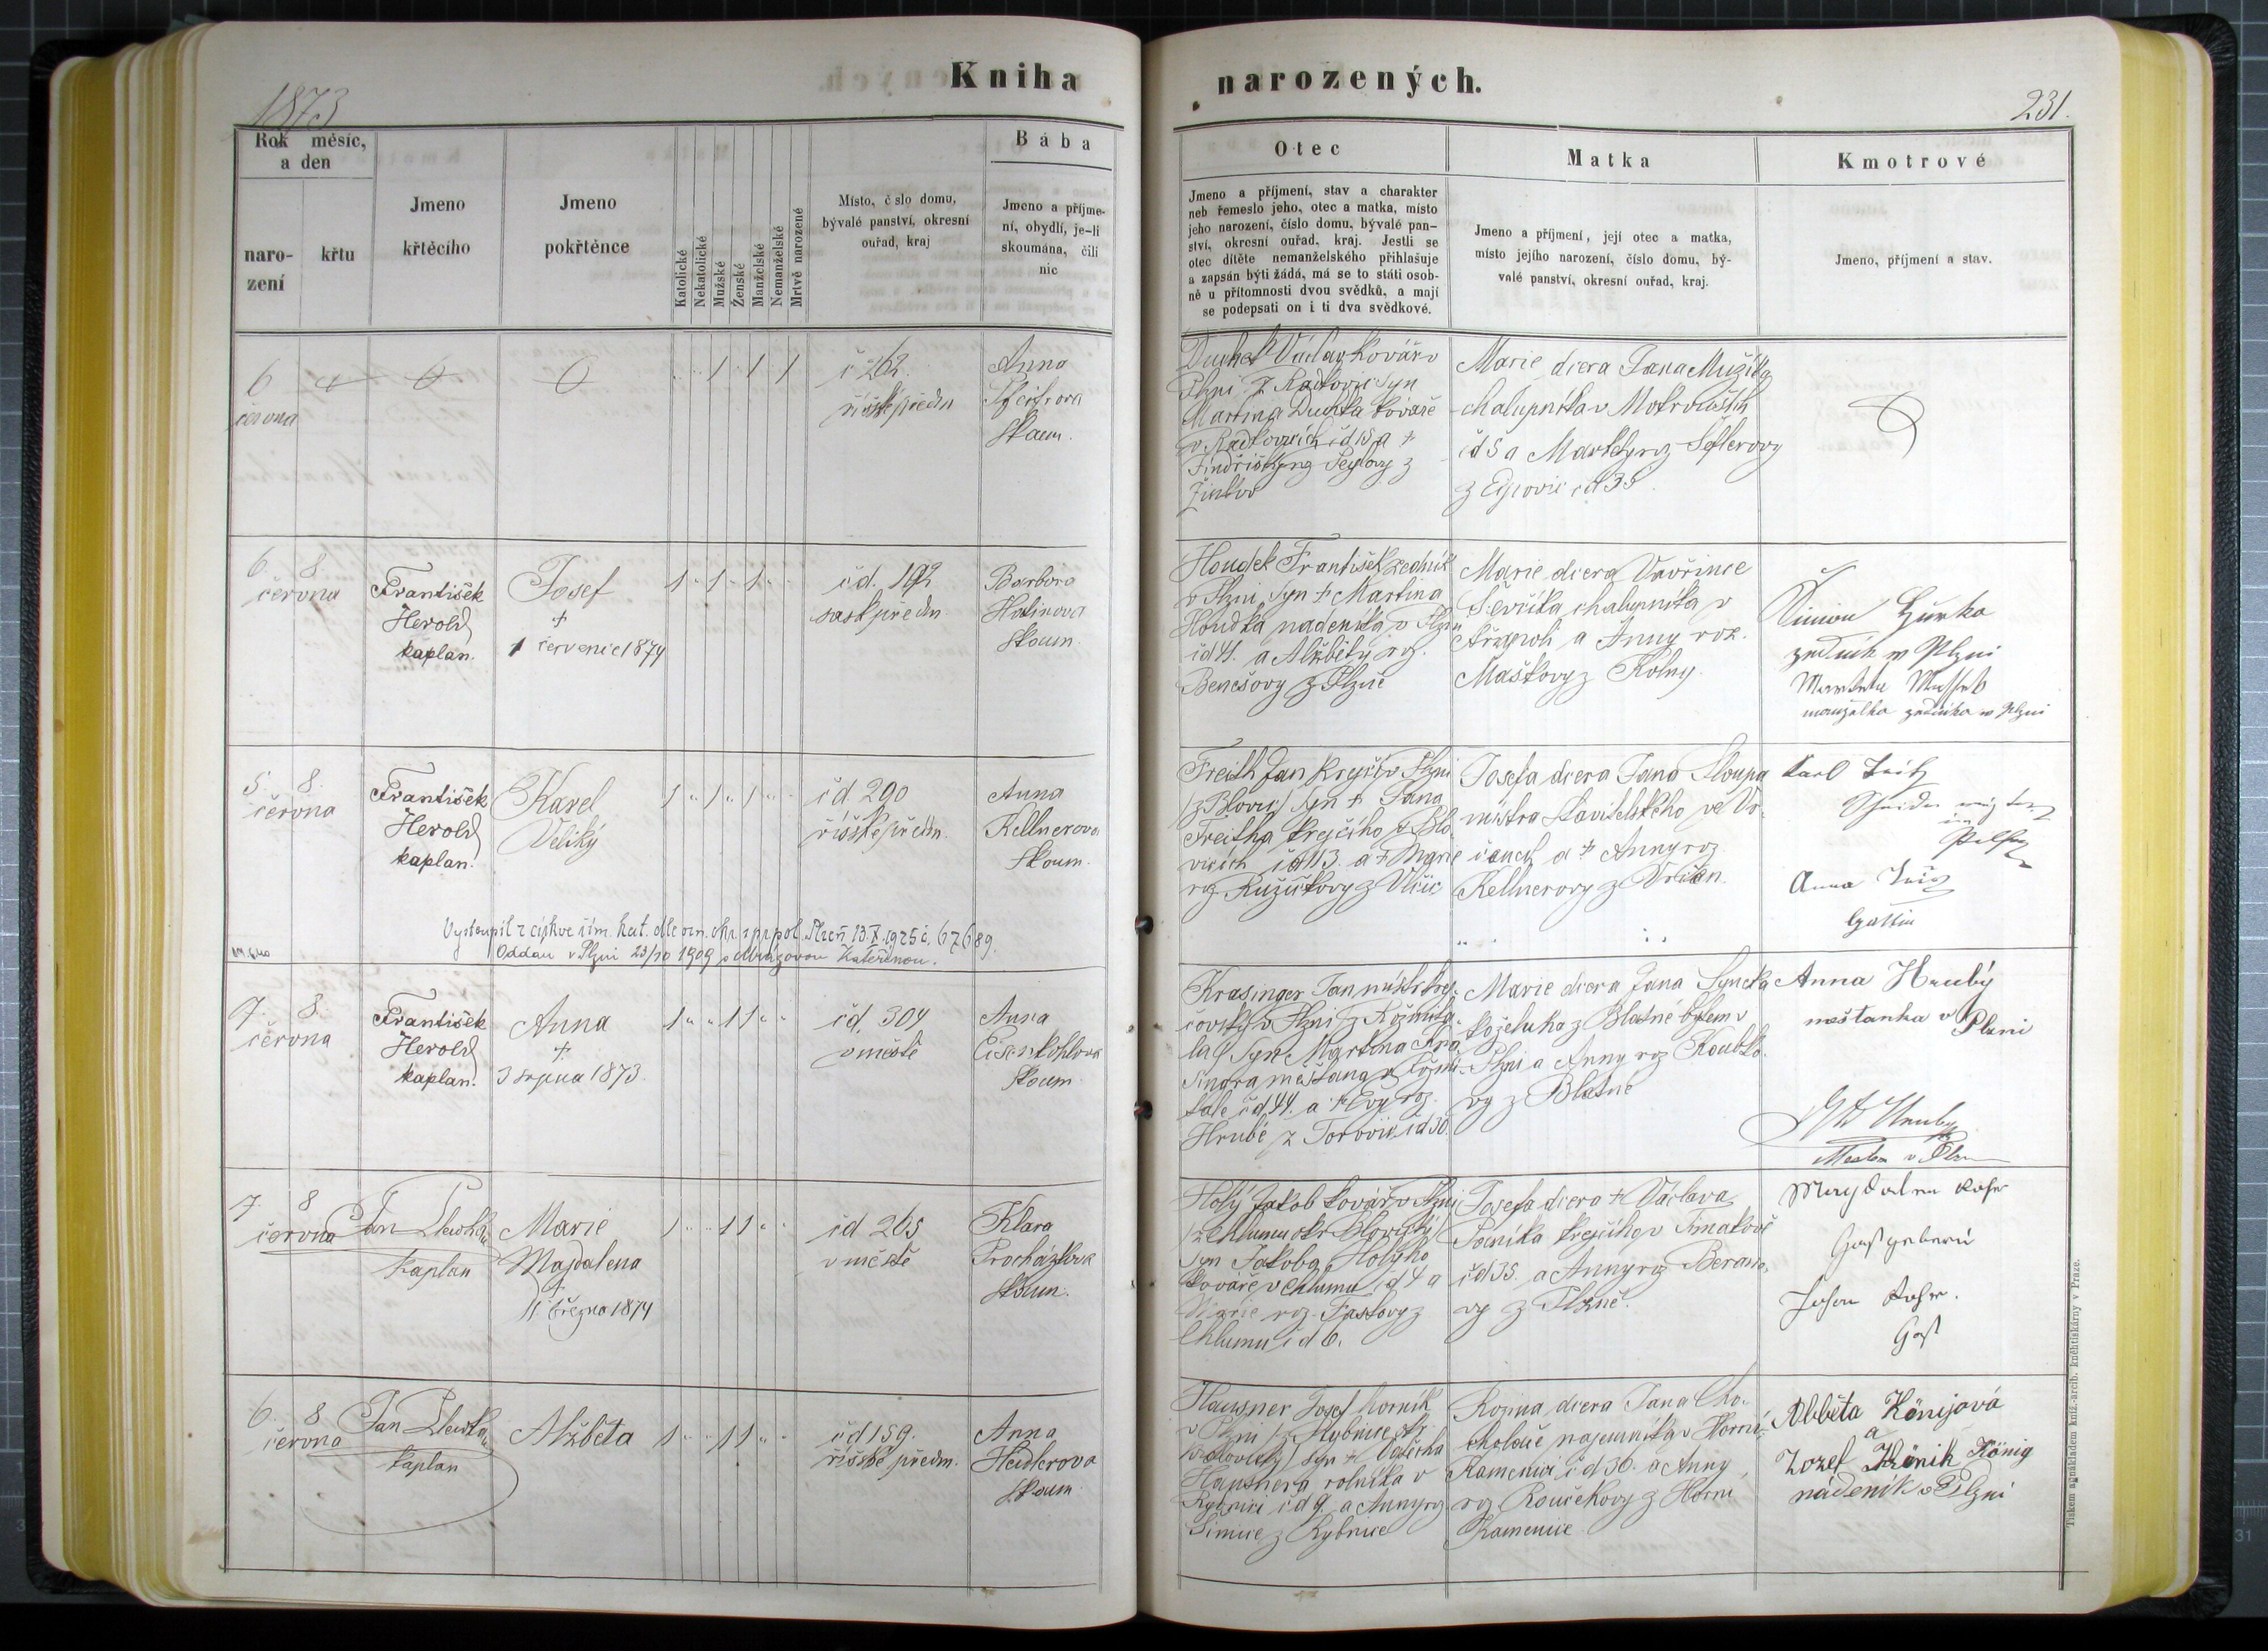 Kniha
narozených.
1873
231.
Rok měsíc,
a den
naro-
zení
křtu
Jmeno
křtěcího
Jmeno
pokřtěnce
Katolické
Nekatolické
Mužské
Ženské
Manželské
Nemanželské
Mrtvě narozené
Místo, č slo domu,
bývalé panství, okresní
ouřad, kraj
Bába
Jmeno a příjme-
ní, obydlí, je-li
skoumána, čili
nic
Otec
Jmeno a příjmení, stav a charakter
neb řemeslo jeho, otec a matka, místo
jeho narození, číslo domu, bývalé pan-
ství, okresní ouřad, kraj. Jestli se
otec dítěte nemanželského přihlašuje
a zapsán býti žádá, má se to státi osob-
ně u přítomnosti dvou svědků, a mají
se podepsati on i ti dva svědkové.
Matka
Jmeno a příjmení, její otec a matka,
místo jejího narození, číslo domu, bý-
valé panství, okresní ouřad, kraj.
Kmotrové
Jmeno, příjmení a stav.
6
června
1 1 1
č 262.
říšské předm
Anna
Skoum.
Duchek Václav kovář v
Plzni z Radkovic syn
Martina Duchka kováře
v Radkovicích čd 15 a +
z
Marie dcera Jana Mužíka
chalupníka v Mokrouších
čd 5 a Markéty roz Seflerovy
z Ejpovic čd 35
6. 8.
června
František
Herold
kaplan.
Josef
+
1 července 1874
1 1 1
čd. 192
sask předm
Barbora
Halinova
Skoum.
Houdek František zedník
v Plzni, syn + Martina
Houdka nadeníka v Plzni
čd 41. a Alžběty roz.
Benešovy z Plzně
Marie dcera Vavřince
Ševčíka chalupníka v
a Anny roz.
Maškovy z Kolny.
Šimon
zedník w Plzni
manželka zedníka w Plzni
5. 8.
června
František
Herold
kaplan.
Karel
Veliký
1 1 1
čd. 290
říšské předm.
Anna
Kellnerova
Skoum.
Freith Jan krejčí v Plzni
(z Blovic) syn + Jana
Freitha krejčího v Blo-
vicích čd 113. a + Marie
roz Ružičkovy z Vlčic
Josefa dcera Jana Sloupa
místra stavitelského ve Vr-
čenech a + Anny roz
Kellnerovy z Vrčen.
Karl
in
Pilsen
Anna
Gattin
Vystoupil z církve řím. kat. dle ozn. okr. spr. pol. Plzeň 13.X.1925 č. 67689.
Oddán v Plzni 23/10 1909 s Mrázovou Kateřinou.
7. 8.
června
František
Herold
kaplan.
Anna
+
3 srpna 1873.
1 1 1
čd. 304
v městě
Anna
Eisenkohlova
Skoum
Krasinger Jan místr krej-
čovský v Plzni (z Rožmitá-
la) syn Martina Kra-
singra měšťana v Rožmi-
tále čd 44. a + Evy roz.
Hrubé z čd 30.
Marie dcera Jana Syncka
koželuha z Blatné bytem v
Plzni a Anny roz Koubko-
vy z Blatné
Anna Hrubý
meštanka v Plzni
Hruby
7. 8
června
Jan
kaplan
Marie
Magdalena
+
11 března 1874
1 1 1
čd 265
v městě
Klara
Procházkova
Skoum.
Holý Jakob kovář v Plzni
(z Chlumu okr Blovický)
syn Jakoba Holýho
kováře v Chlumu čd 4 a
Marie roz. z
Chlumu čd 6.
Josefa dcera + Václava
krejčího v
čd 35. a Anny roz Berano-
vy z Plzně.
Magdalena
Johan
6. 8
června
Jan
kaplan
Alžběta
1 1 1
čd 159.
říšské předm.
Anna
Heidlerova
Skoum
Hausner Josef horník
v Plzni (z Rybnice okr
syn + Vojtěcha
Hausnera rolníka v
Rybnici čd 9. a Anny roz
Šimice z Rybnice
Rozina dcera Jana Cho-
cholouše najemníka v Horní
Kamenici čd 36. a Anny
roz Roučkovy z Horní
Kamenice
Alběta Königová
a
Jozef Könik König
nádeník v Plzni
Tiskem a nákladem kníž.-arcib. knihtiskárny v Praze.